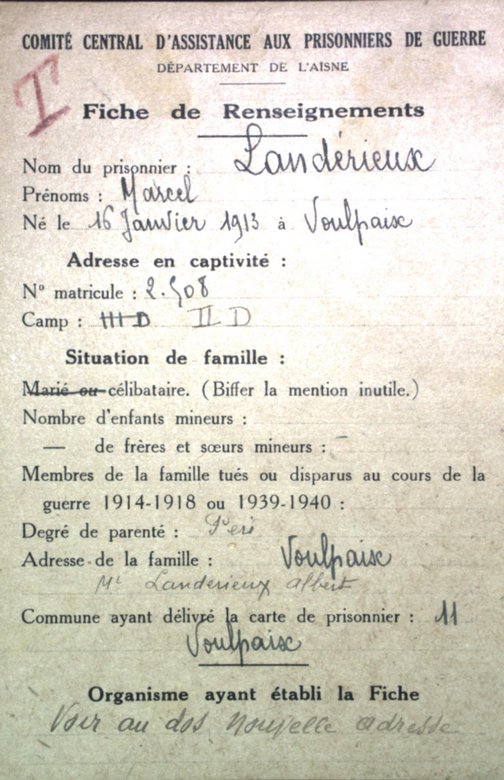 COMITÉ CENTRAL D'ASSISTANCE AUX PRISONNIERS DE GUERRE
DÉPARTEMENT DE L'AISNE
T
Fiche de Renseignements
Nom du prisonnier : Landérieux
Prénoms : Marcel
Né le 16 Janvier 1913 à Voulpaix
Adresse en captivité :
N° matricule : 2.508
Camp : III D II D
Situation de famille :
Marié ou célibataire. (Biffer la mention inutile.)
Nombre d'enfants mineurs :
— de frères et sœurs mineurs : -
Membres de la famille tués ou disparus au cours de la
guerre 1914-1918 ou 1939-1940 :
Degré de parenté : Père
Adresse de la famille : Voulpaix
Mr Landerieux Albert
Commune ayant délivré la carte de prisonnier : 11
Voulpaix
Organisme ayant établi la Fiche
Voir au dos nouvelle adresse